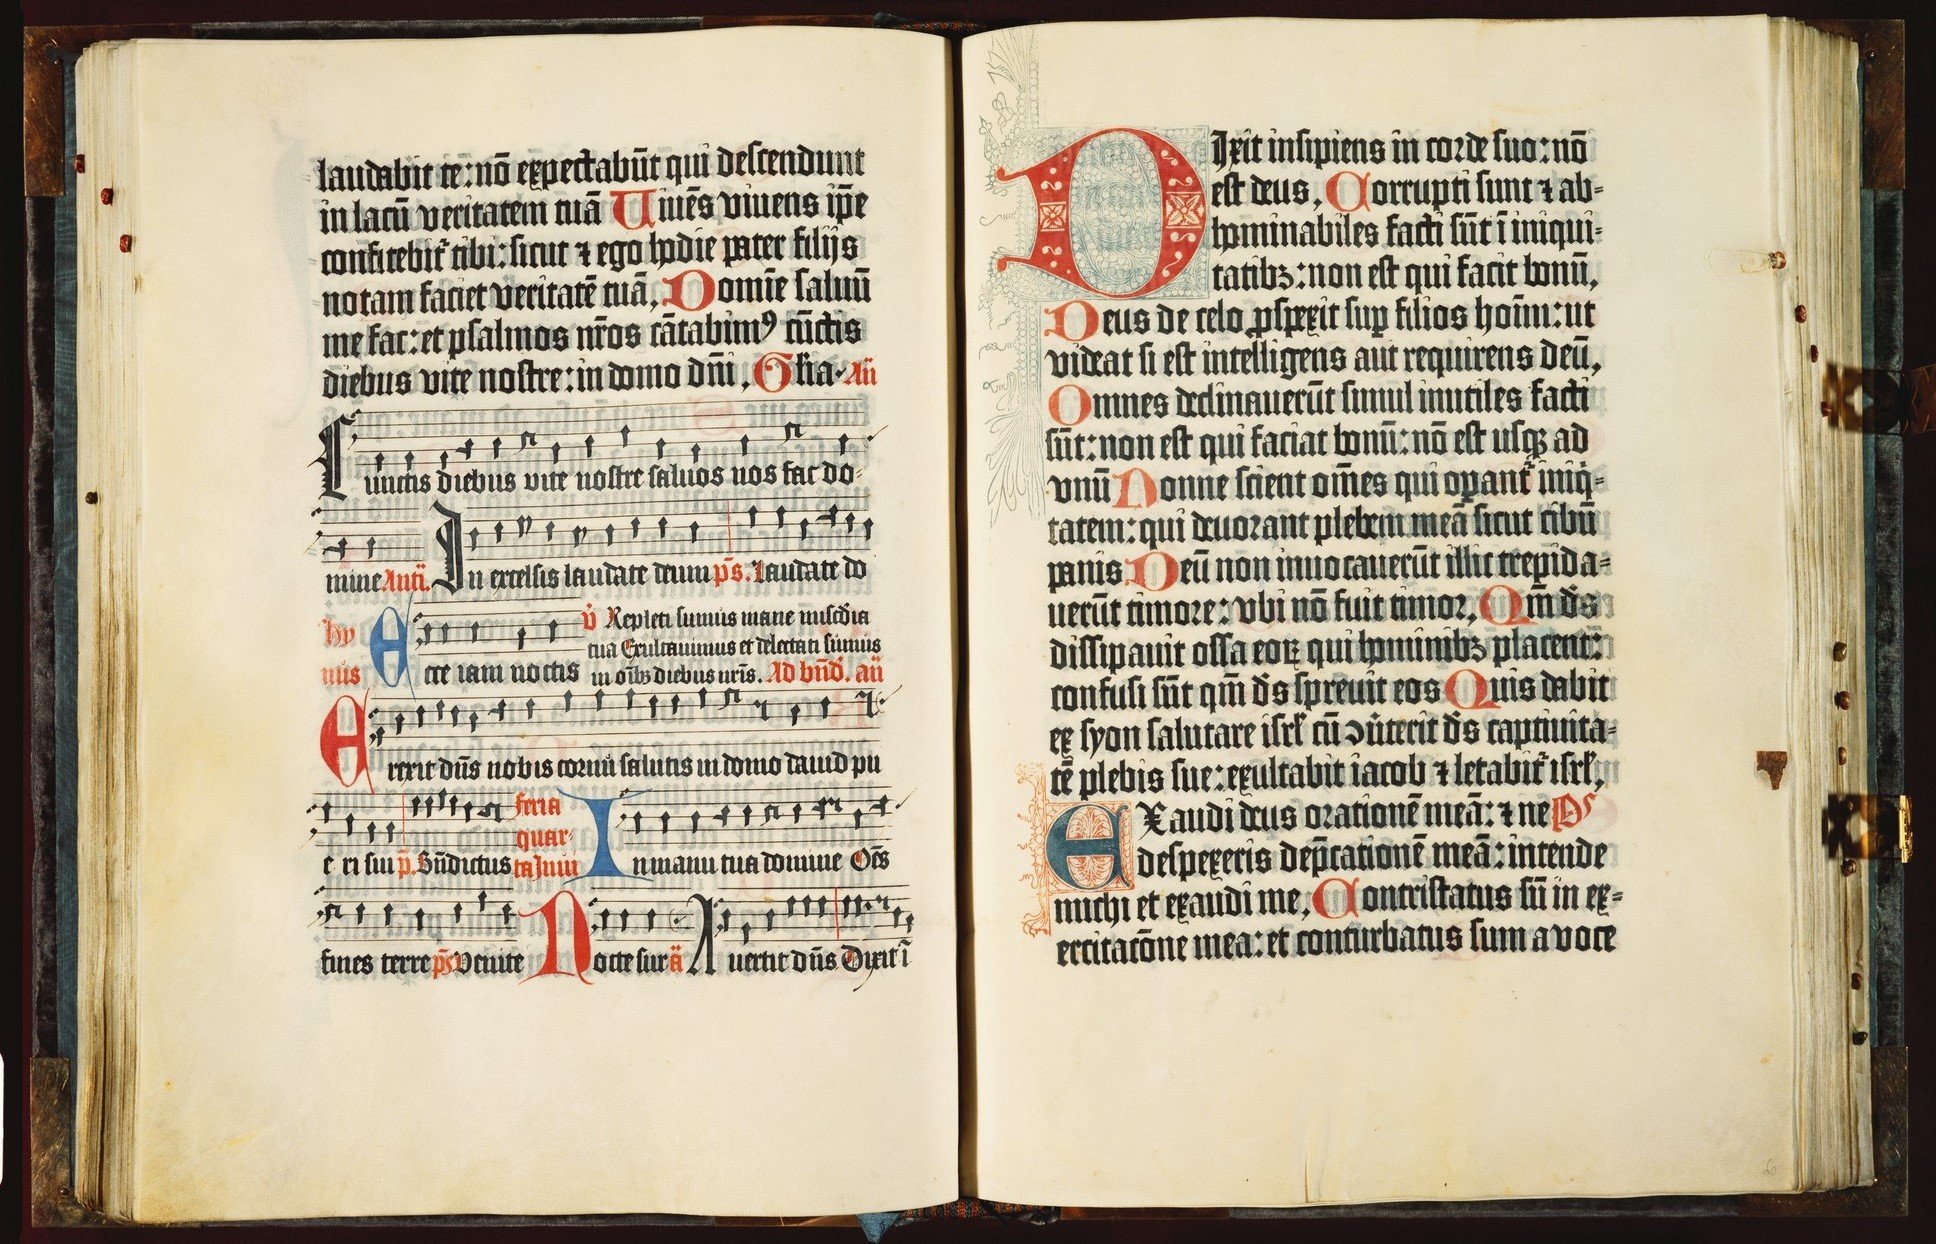 laudabit te: nō expectabūt qui descendunt
in lacū veritatem tuā Uiuēs viuens ip̄e
confitebit᷑ tibi: sicut ⁊ ego hodie pater filijs
notam faciet veritatē tuā, Domīe saluū
me fac: et psalmos nr̄os cātabimꝰ cūctis
diebus vite nostre: in domo dn̄i, Gl̄ia· An̄
Cunctis diebus vite nostre saluos nos fac do-
mine Anti. In excelsis laudate deum p̄s. Laudate do
hy
nus
Ecce iam noctis
v̇ Repleti sumus mane miscd̄ia
tua Exultauimus et delectati sumus
in oībꝫ diebus nr̄is. Ad bn̄d. an̄
Erexit dn̄s nobis cornu salutis in domo dauid pu
e ri sui p̄. Bn̄dictus feria quar- ta Inui In manu tua domine Om̄s
fines terre p̄s Venite Nocte sur ā Auertit dn̄s Dixit ī
Dixit insipiens in corde suo: nō
est deus, Corrupti sunt ⁊ ab-
hominabiles facti sūt ī iniqui-
tatibꝫ: non est qui facit bonū,
Deus de celo ꝓspexit suꝑ filios hoīm: ut
videat si est intelligens aut requirens deū,
Omnes declinauerūt simul inutiles facti
sūt: non est qui faciat bonū: nō est usqꝫ ad
vnū Nonne scient om̄es qui oꝑant᷑ iniq̄-
tatem: qui deuorant plebem meā sicut cibū
panis Deū non inuocauerūt illic trepida-
uerūt timore: vbi nō fuit timor, Qm̄ d̄s
dissipauit ossa eoꝝ qui hominibꝫ placent:
confusi sūt qm̄ d̄s spreuit eos Quis dabit
ex syon salutare isrl̄ cū ↄūterit d̄s captiuita-
tē plebis sue: exultabit iacob ⁊ letabit᷑ isrl̄,
Exaudi deus orationē meā: ⁊ ne Ps
despexeris dep̄cationē meā: intende
michi et exaudi me, Contristatus sū in ex-
ercitatōne mea: et conturbatus sum a voce